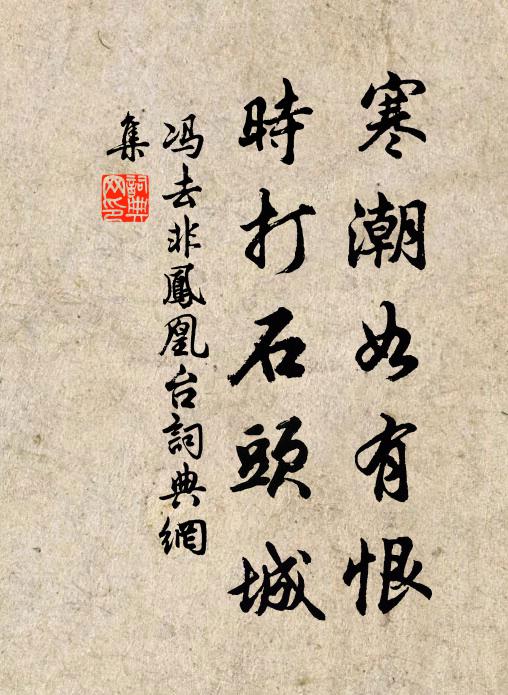 寒潮如有恨
時打石頭城
冯去非鳳凰台詞典網
集
詞典
网印